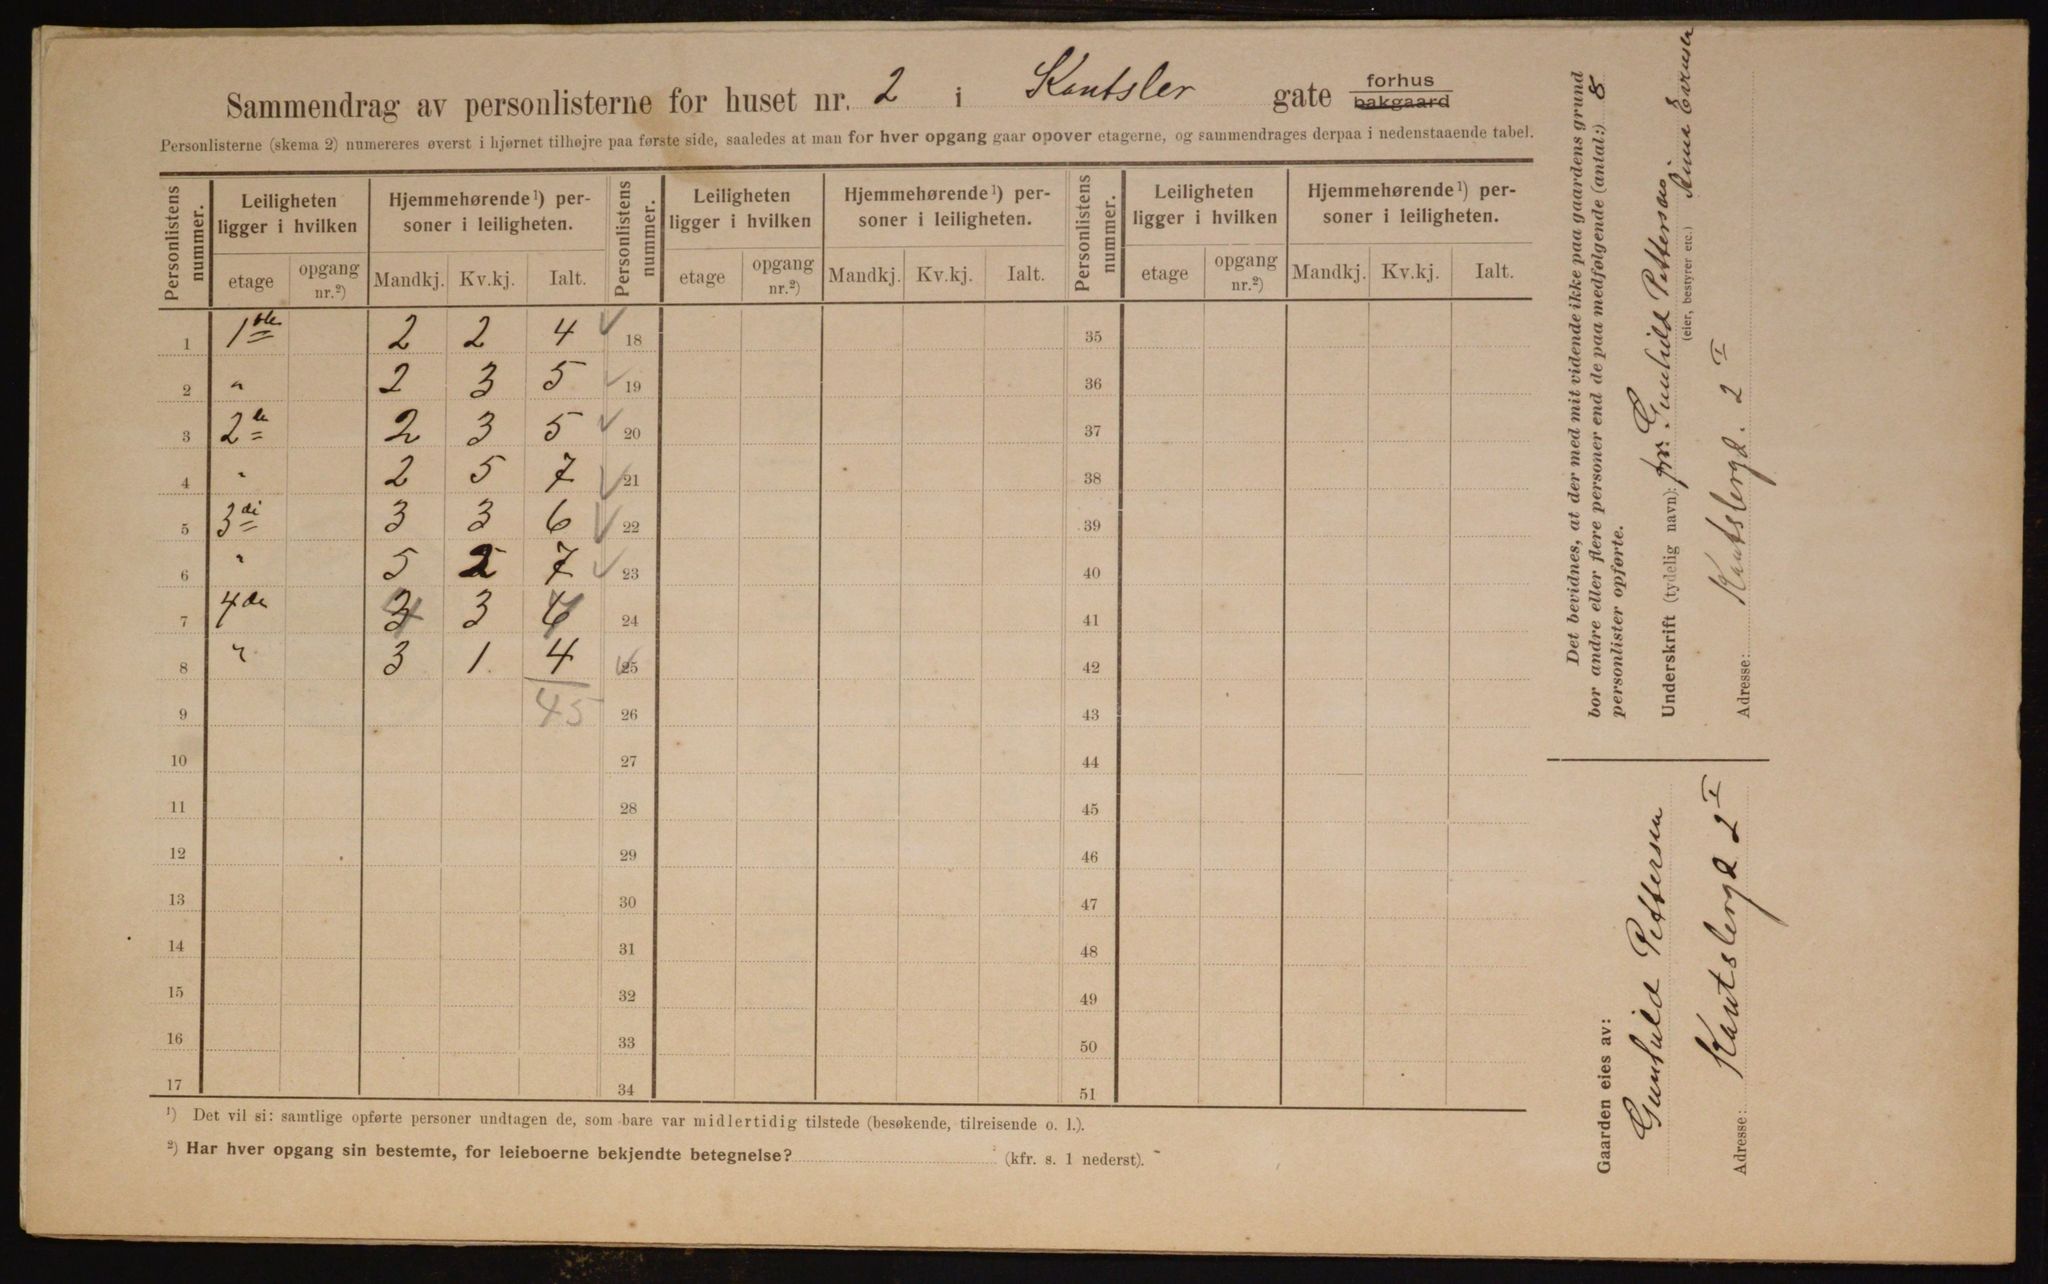 Sammendrag av personlisterne for huset nr. 2 i Kantsler gate forhus bakgaard
Personlisterne (skema 2) numereres øverst i hjørnet tilhøjre paa første side, saaledes at man for hver opgang gaar opover etagerne, og sammendrages derpaa i nedenstaaende tabel.
Personlistens nummer. Leiligheten ligger i hvilken Hjemmehørende¹) personer i leiligheten. Personlistens nummer. Leiligheten ligger i hvilken Hjemmehørende¹) personer i leiligheten. Personlistens nummer. Leiligheten ligger i hvilken Hjemmehørende¹) personer i leiligheten.
etage opgang nr.²) Mandkj. Kv.kj. Ialt. etage opgang nr.²) Mandkj. Kv.kj. Ialt. etage opgang nr.²) Mandkj. Kv.kj. Ialt.
1 1ste 2 2 4 ✓ 18 35
2 " 2 3 5 ✓ 19 36
3 2de 2 3 5 ✓ 20 37
4 " 2 5 7 ✓ 21 38
5 3di 3 3 6 ✓ 22 39
6 " 5 2 7 ✓ 23 40
7 4de 4 3 7 24 41
8 " 3 1 4 ✓ 25 42
9 45 26 43
10 27 44
11 28 45
12 29 46
13 30 47
14 31 48
15 32 49
16 33 50
17 34 51
¹) Det vil si: samtlige opførte personer undtagen de, som bare var midlertidig tilstede (besøkende, tilreisende o. l.).
²) Har hver opgang sin bestemte, for leieboerne bekjendte betegnelse? (kfr. s. 1 nederst).
Det bevidnes, at der med mit vidende ikke paa gaardens grund
bor andre eller flere personer end de paa medfølgende (antal:) 8
personlister opførte.
Underskrift (tydelig navn): for Gunhild Pettersen Anna
(eier, bestyrer etc.)
Adresse: Kantslergd. 2 I
Gaarden eies av:
Gunhild Pettersen
Adresse: Kantslergd 2 I